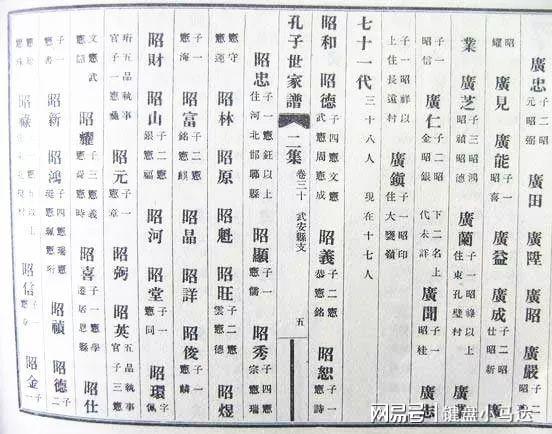 廣忠 子二昭元昭弼 廣田 廣陞 廣昭 廣嚴 子二昭
耀昭 廣見 廣能 子一昭喜 廣益 廣成 子二昭仕昭新 廣
業 廣芝 子三昭鴻昭禎昭德 廣蘭 子一昭祿以上住東孔壁村 廣
子一昭信 廣仁 子二昭金昭銀 下二名上代未詳 廣聞 子一昭桂 廣志
子一昭祥以上住長遠村 廣鎮 子一昭印住大嶺
七十一代 三十八人 現在十七人
昭和 昭德 子四憲文憲武憲周憲成 昭義 子二憲恭憲銘 昭恕 子一憲詩
孔子世家譜 二集 卷三十 武安縣支 五
昭忠 子一憲鈺以上住河北邯鄲縣 昭顯 子一憲儒 昭秀 子四憲宗憲瑞
憲守憲蓮 昭林 昭原 昭魁 昭旺 子二憲雲憲德 昭煜
子一憲海 昭富 子二憲銘憲麒 昭晶 昭詳 昭俊 子一憲麟
昭財 昭山 子二憲銀憲福 昭河 昭堂 子一憲同 昭環 字佩
珩五品執事官子一憲事 昭元 子一憲章 昭弼 昭英 五品執事官子三憲
文憲武憲 昭耀 子三憲義憲舜憲時 昭喜 子一憲學遷居恩縣 昭仕
子一憲書 昭新 昭鴻 子四憲瑞憲挺憲珮憲珩 昭禎 昭德 子二
憲珍憲珠 昭祿 村 昭信 子一憲章 昭金 子一
網易号 | 键盘小马达